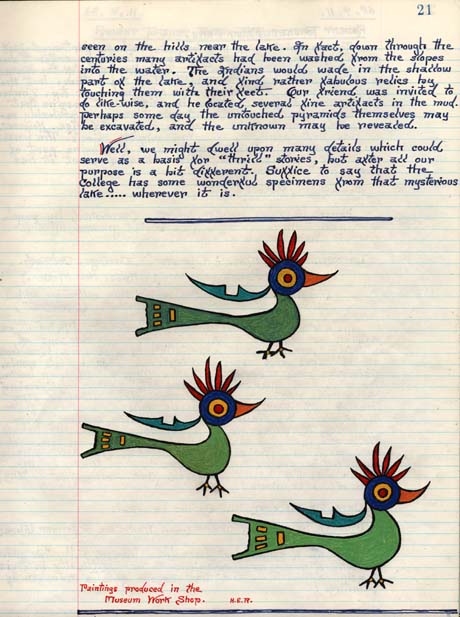 21
seen on the hills near the lake. In fact, down through the
centuries many artifacts had been washed from the slopes
into the water. The Indians would wade in the shallow
part of the lake, and find rather fabulous relics by
touching them with their feet. Our friend was invited to
do like-wise, and he located, several fine artifacts in the mud.
Perhaps some day the untouched pyramids themselves may
be excavated, and the unknown may be revealed.
Well, we might dwell upon many details which could
serve as a basis for "thrill" stories, but after all our
purpose is a bit different. Suffice to say that the
College has some wonderful specimens from that mysterious
lake..... wherever it is.
Paintings produced in the
Museum Work Shop. H.E.R.